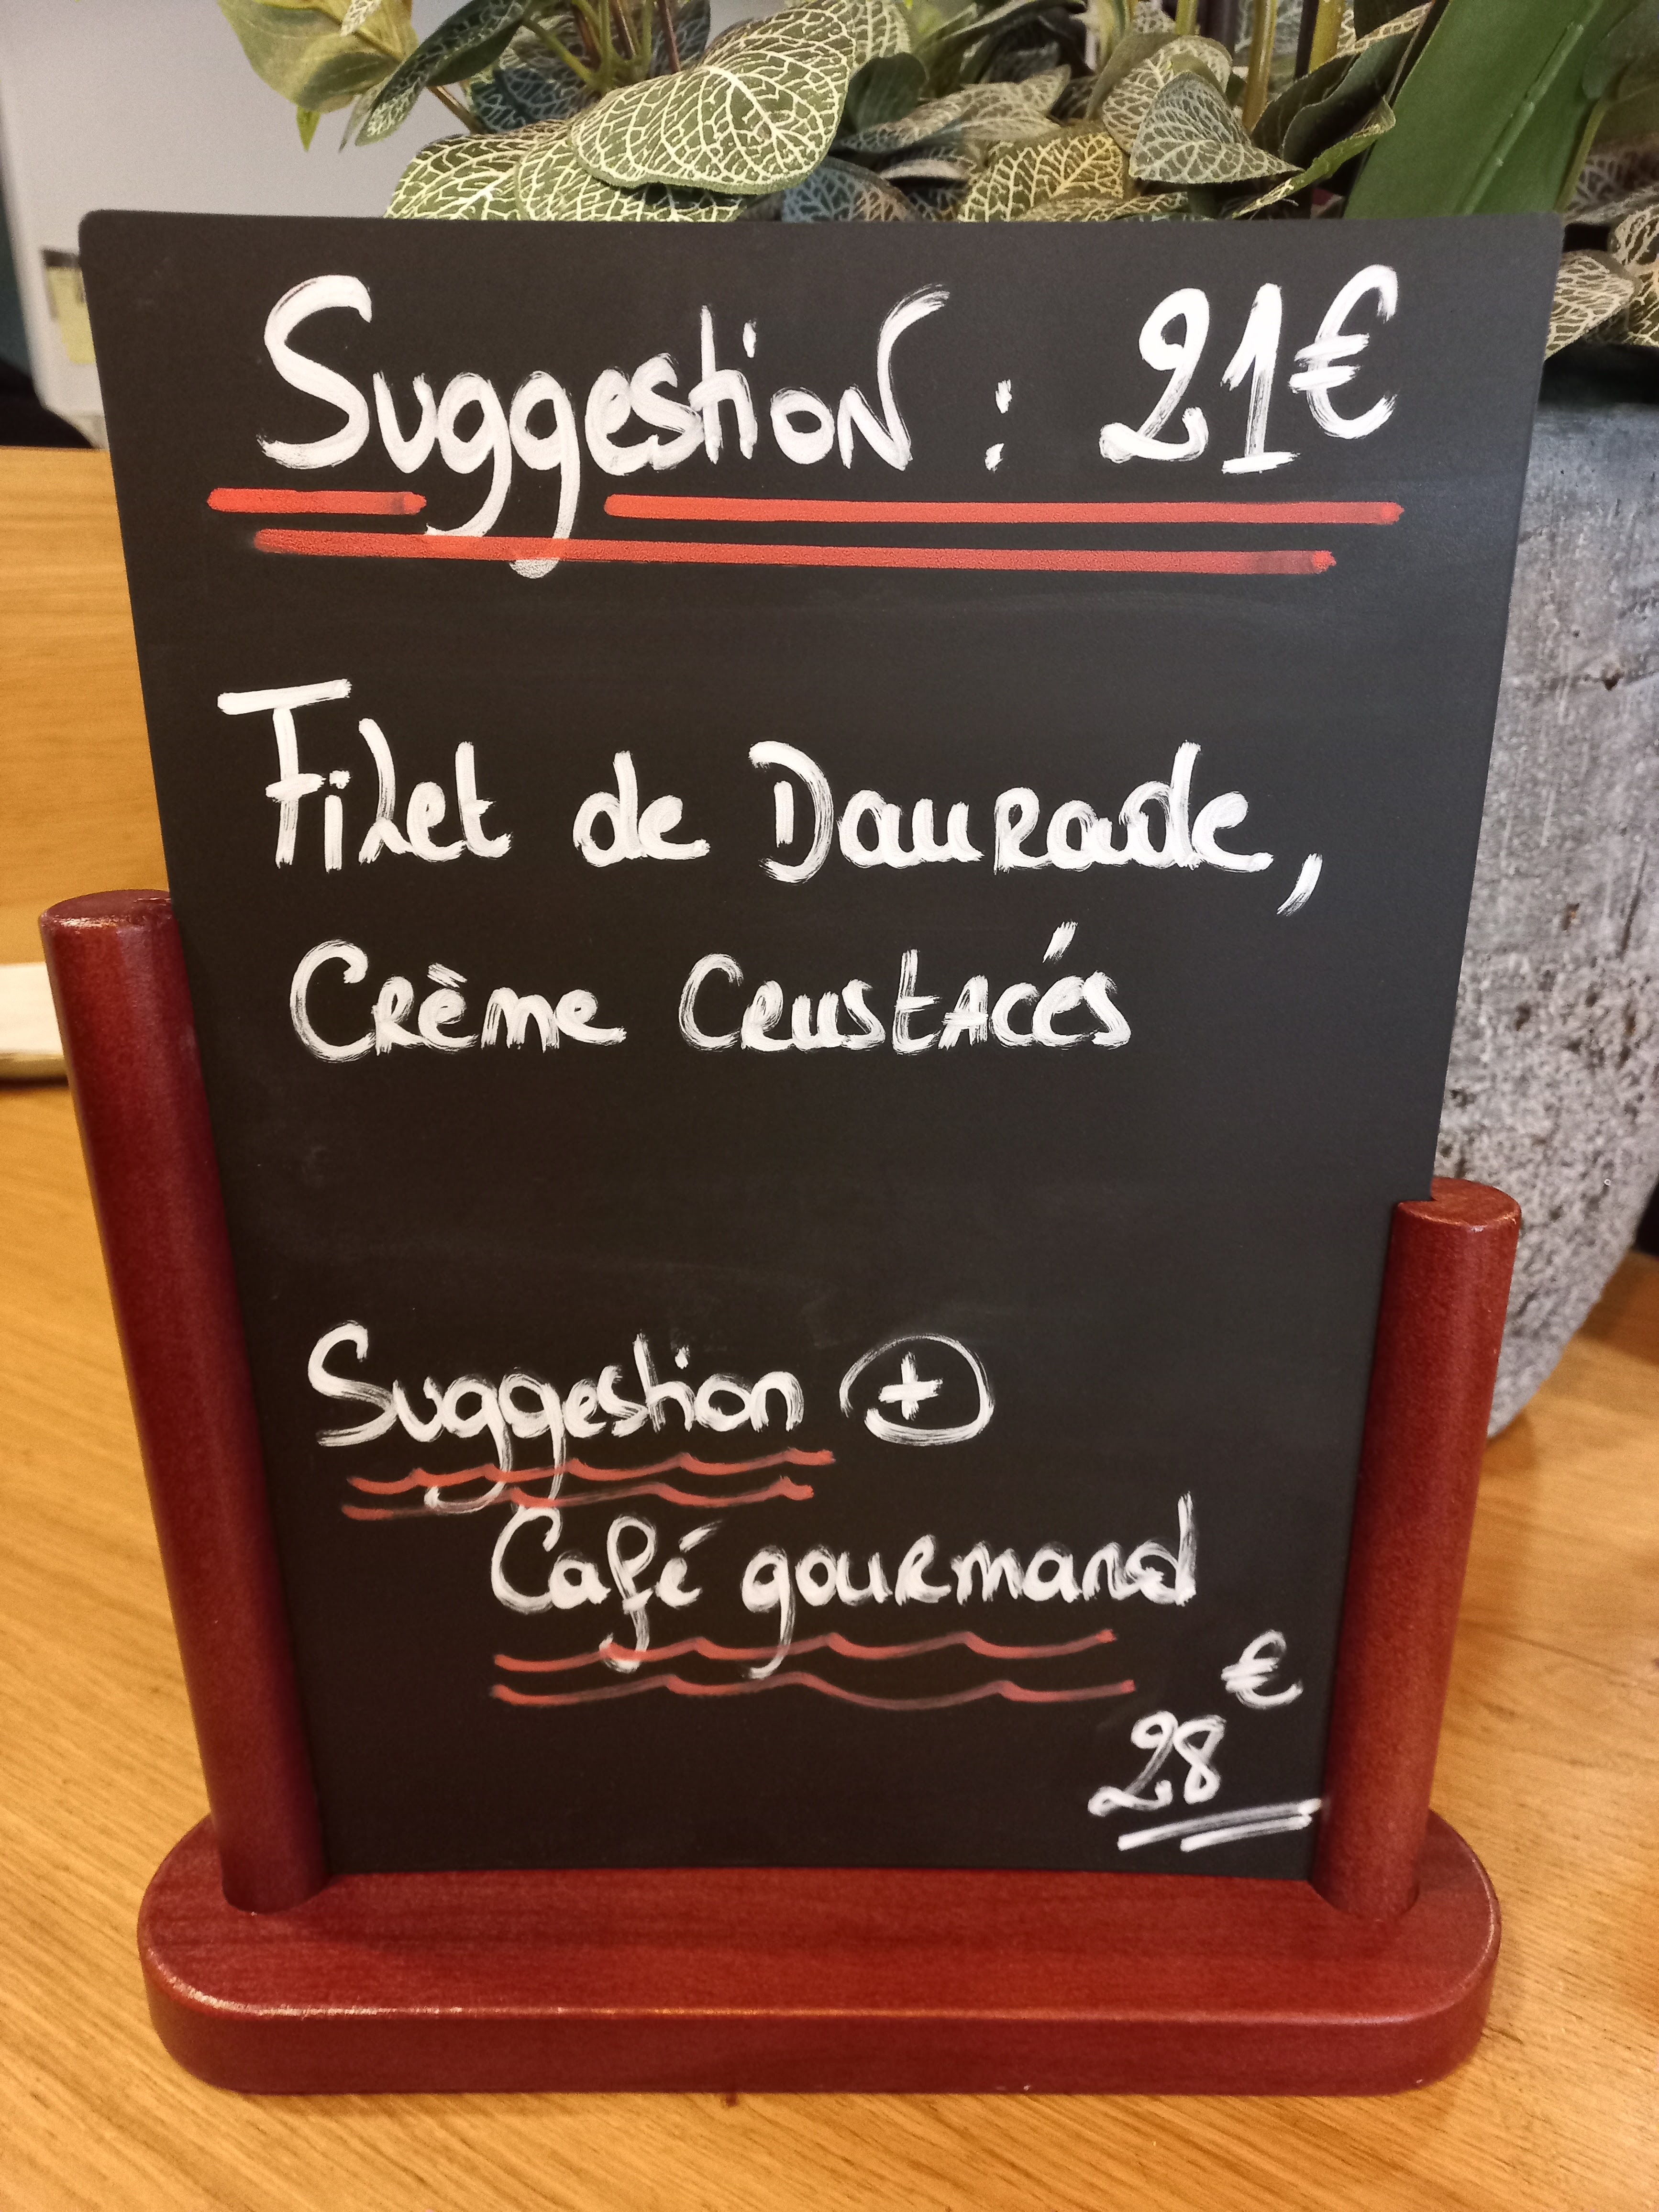 Suggestion : 21€
Filet de Daurade,
Crème Crustacés
Suggestion +
Café gourmand
28€